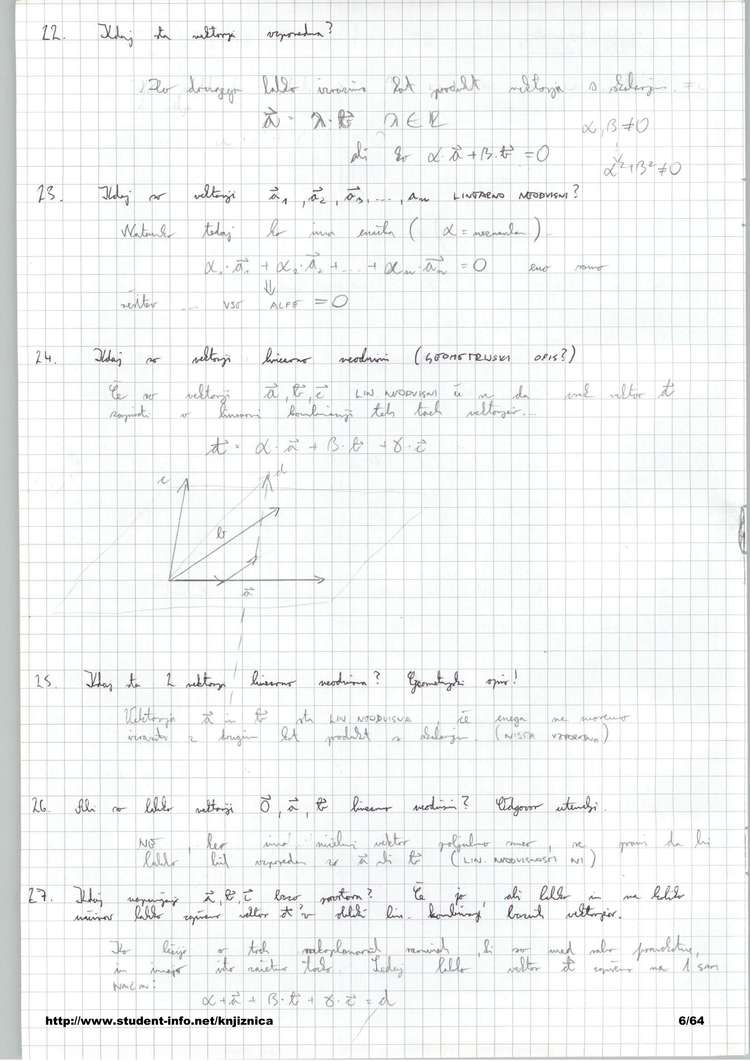 22. Kdaj sta vektorja vzporedna?
Ko drugega lahko izrazimo kot produkt vektorja s skalarjem
a⃗ = λ·b⃗ λ∈R α,β≠0
ali ko α·a⃗+β·b⃗=0 α²+β²≠0
23. Kdaj so vektorji a⃗₁, a⃗₂, a⃗₃, ..., aₙ LINEARNO NEODVISNI?
Natanko tedaj ko ima enačba (α = )
α₁·a⃗₁ + α₂·a⃗₂ + ... + αₙ·a⃗ₙ = 0 eno samo
⇓
rešitev ... VSE ALFE = 0
24. Kdaj so vektorji linearno neodvisni (GEOMETRIJSKI OPIS?)
Če so vektorji a⃗, b⃗, c⃗ LIN NEODVISNI če se da vektor d⃗
zapisati v linearni kombinaciji teh treh vektorjev...
d⃗ = α·a⃗ + β·b⃗ + γ·c⃗
c d
b
a⃗
25. Kdaj sta 2 vektorja linearno neodvisna? Geometrijski opis!
Vektorja a⃗ in b⃗ sta LIN NEODVISNA, če enega ne moremo
izraziti z drugim kot produkt s skalarjem. (NISTA VZPOREDNA)
26. Ali so lahko vektorji 0⃗, a⃗, b⃗ linearno neodvisni? Odgovor utemelji.
NE ker ima ničelni vektor poljubno smer, se pravi da bi
lahko bil vzporeden z a⃗ ali b⃗ (LIN. NEODVISNOSTI NI)
27. Kdaj a⃗, b⃗, c⃗ bazo prostora? Če jo, ali lahko in na koliko
načinov lahko zapišemo vektor d⃗ v obliki lin. kombinacij baznih vektorjev.
Ko ležijo v treh ravninah, ki so med sabo pravokotne,
in imajo isto začetno točko. Tedaj lahko vektor d⃗ zapišemo na 1 sam
NAČIN!
α+a⃗ + β·b⃗ + γ·c⃗ = d
http://www.student-info.net/knjiznica 6/64